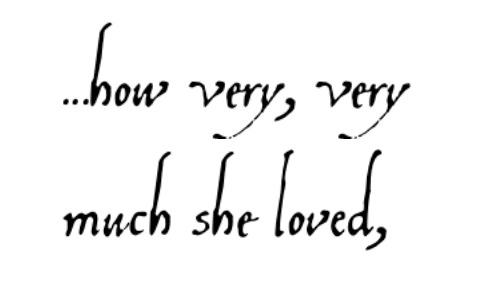 ...how very, very
much she loved,